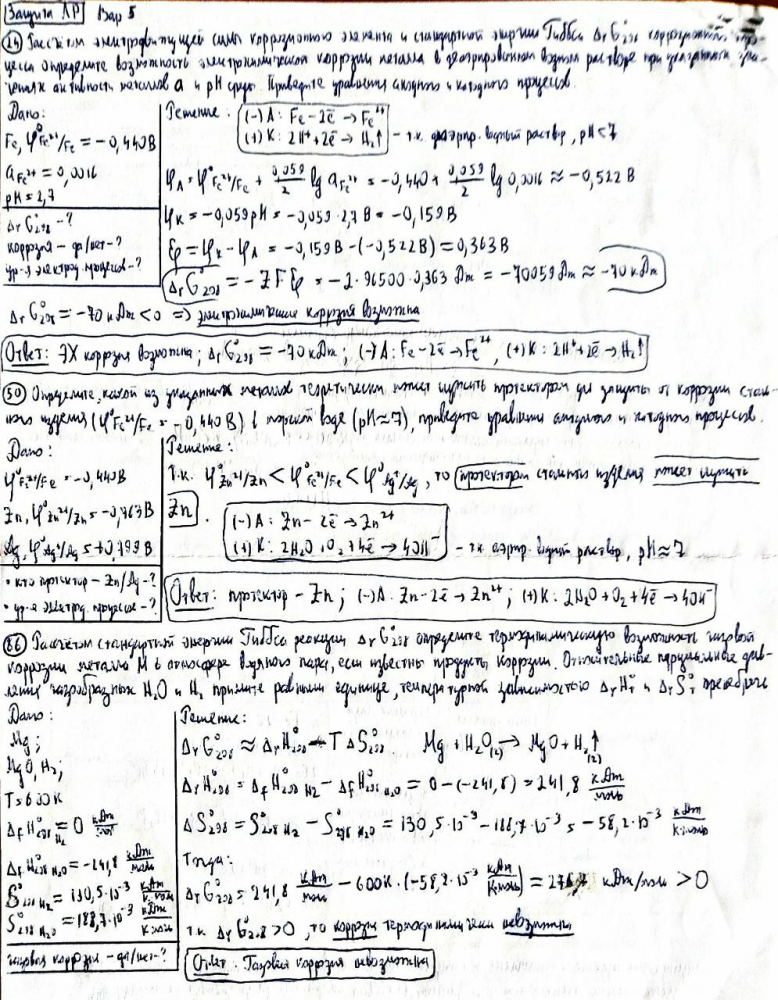 Защита ЛР Вар 5
(24) Рассчётом электродвижущей силы коррозионного элемента и стандартной энергии Гиббса ΔrG°298 коррозионного про-
цесса определите возможность электрохимической коррозии металла в деаэрированном водном растворе при указанных зна-
чениях активности металлов a и pH среды. Приведите уравнения анодного и катодного процессов.
Дано:
Fe, φ°Fe²⁺/Fe = -0,440В
aFe²⁺ = 0,0016
pH = 2,7
ΔrG°298 -?
коррозия - да/нет -?
ур-я электрод. процессов -?
Решение:
(-) А: Fe - 2ē → Fe²⁺
(+) К: 2H⁺ + 2ē → H₂↑ - т.к. деаэрир. водный раствор, pH<7
φA = φ°Fe²⁺/Fe + 0,059/2 lg aFe²⁺ = -0,440 + 0,059/2 lg 0,0016 ≈ -0,522 В
φK = -0,059pH = -0,059·2,7 В = -0,159 В
Eφ = φK - φA = -0,159В - (-0,522В) = 0,363В
ΔrG°298 = -ZFEφ = -2·96500·0,363 Дж = -70059 Дж ≈ -70 кДж
ΔrG°298 = -70 кДж < 0 => электрохимическая коррозия возможна
Ответ: ЭХ коррозия возможна; ΔrG°298 = -70 кДж; (-) А: Fe - 2ē → Fe²⁺, (+) К: 2H⁺ + 2ē → H₂↑
(50) Определите, какой из указанных металлов теоретически может служить протектором для защиты от коррозии сталь-
ного изделия (φ°Fe²⁺/Fe = -0,440 В) в морской воде (pH≈7), приведите уравнения анодного и катодного процессов.
Дано:
φ°Fe²⁺/Fe = -0,440В
Zn, φ°Zn²⁺/Zn = -0,763В
Ag, φ°Ag⁺/Ag = +0,799 В
• кто протектор - Zn/Ag -?
• ур-я электрод. процессов -?
Решение:
Т.к. φ°Zn²⁺/Zn < φ°Fe²⁺/Fe < φ°Ag⁺/Ag, то протектором стального изделия может служить
Zn.
(-) А: Zn - 2ē → Zn²⁺
(+) К: 2H₂O + O₂ + 4ē → 4OH⁻ - т.к. аэрир. водный раствор, pH≈7
Ответ: протектор - Zn; (-) А: Zn - 2ē → Zn²⁺; (+) К: 2H₂O + O₂ + 4ē → 4OH⁻
(86) Рассчётом стандартной энергии Гиббса реакции ΔrG°298 определите термохимическую возможность газовой
коррозии металла M в атмосфере водяного пара, если известны продукты коррозии. Относительные парциальные дав-
ления газообразных H₂O и H₂ примите равными единице, температурной зависимостью ΔrH°T и ΔrS°T пренебречь
Дано:
Mg;
MgO, H₂;
T = 600K
ΔfH°298 H₂ = 0 кДж/моль
ΔfH°298 H₂O = -241,8 кДж/моль
S°298 H₂ = 130,5·10⁻³ кДж/К·моль
S°298 H₂O = 188,7·10⁻³ кДж/К·моль
газовая коррозия - да/нет -?
Решение:
ΔrG°298 ≈ ΔrH°298 - TΔS°298 Mg + H₂O(г) → MgO + H₂↑(г)
ΔrH°298 = ΔfH°298 H₂ - ΔfH°298 H₂O = 0 - (-241,8) = 241,8 кДж/моль
ΔS°298 = S°298 H₂ - S°298 H₂O = 130,5·10⁻³ - 188,7·10⁻³ = -58,2·10⁻³ кДж/К·моль
Тогда:
ΔrG°298 = 241,8 кДж/моль - 600К·(-58,2·10⁻³ кДж/К·моль) = 276,7 кДж/моль > 0
т.к. ΔrG°298 > 0, то коррозия термодинамически невозможна
Ответ: Газовая коррозия невозможна